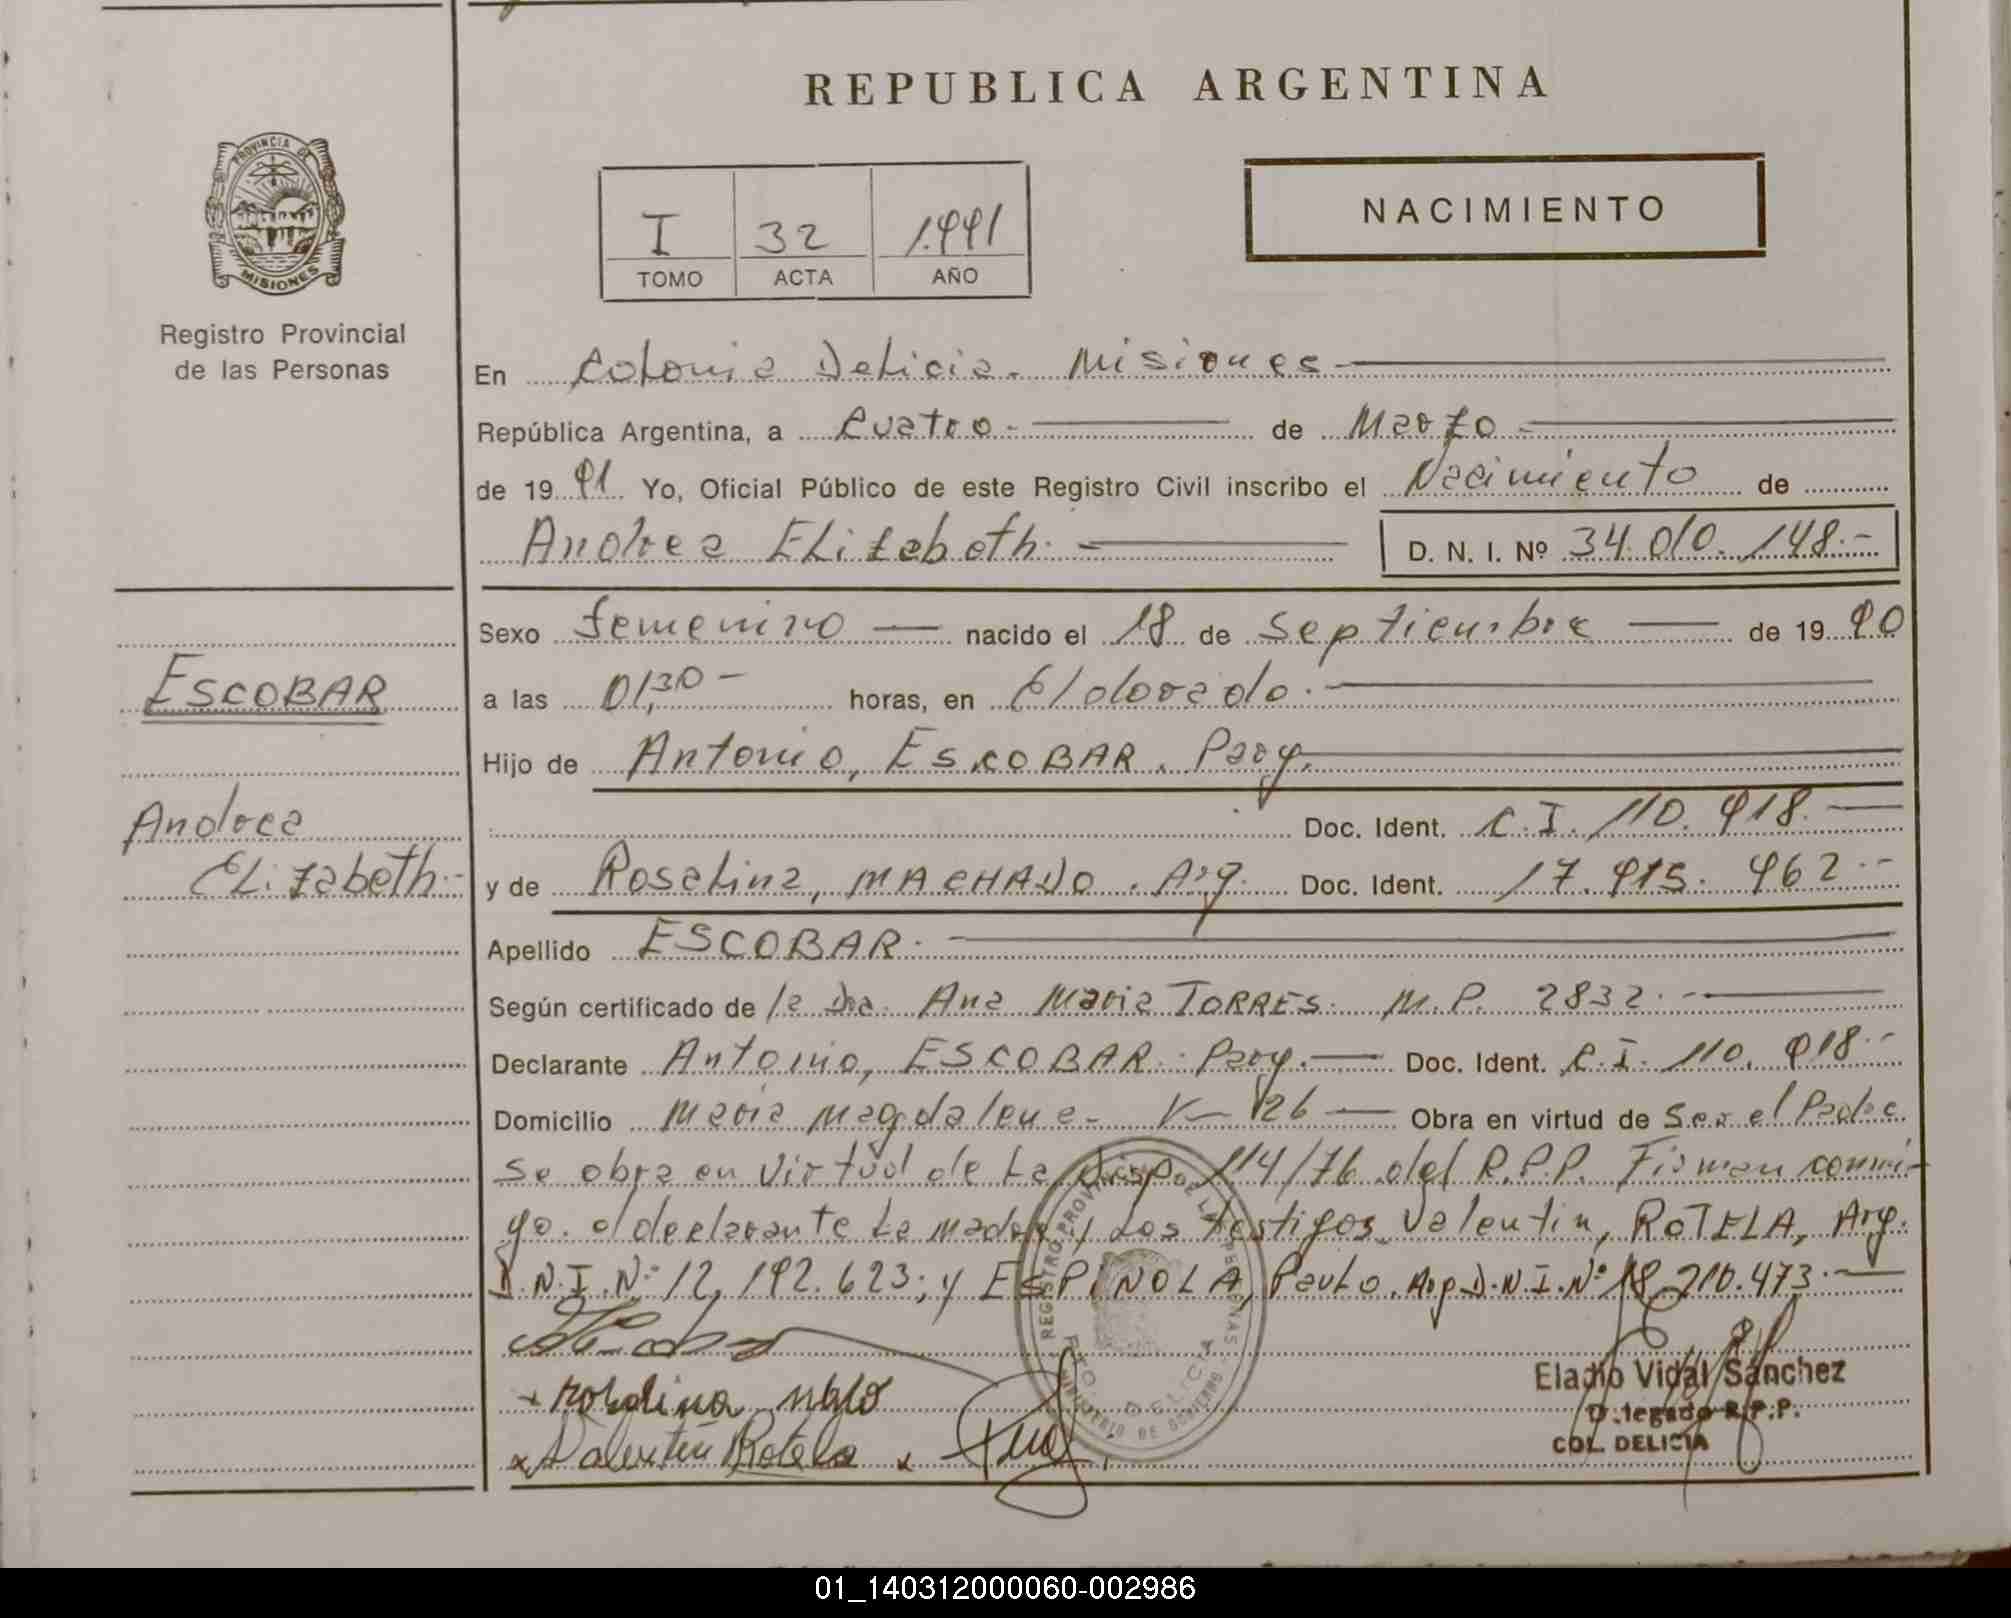 REPUBLICA ARGENTINA
PROVINCIA DE
MISIONES
Registro Provincial
de las Personas
I 32 1.991
TOMO ACTA AÑO
NACIMIENTO
En Colonia Delicia. Misiones
República Argentina, a Cuatro.- de Marzo -
de 19 91 Yo, Oficial Público de este Registro Civil inscribo el Nacimiento de
Andrea Elizabeth. - D. N. I. Nº 34.010.148.-
Sexo femenino — nacido el 18 de Septiembre — de 19 90
a las 01,30 - horas, en Eldorado.
Hijo de Antonio, ESCOBAR. Parg.
Doc. Ident. C.I. 110.918. —
y de Roselina, MACHADO. Arg. Doc. Ident. 17.915.962.-
Apellido ESCOBAR. -
Según certificado de la Dra. Ana Maria TORRES. M.P. 2832. -
Declarante Antonio, ESCOBAR. Parg. — Doc. Ident. C.I. 110.918.-
Domicilio Maria Magdalena- K- 26 — Obra en virtud de Ser el Padre.
Se obra en virtud de La disp. 114/76 del R.P.P. Firman conmi-
go. el declarante La madre y Los testigos Valentin, ROTELA, Arg.
D.N.I.Nº 12,192.623; y ESPINOLA, Paulo. Arg D.N.I.Nº 18.210.473.-
ESCOBAR
Andrea
Elizabeth.-
REGISTRO PROVINCIAL DE LAS PERSONAS
DELICIA
MINISTERIO DE GOBIERNO
x Valentin Rotela x
Eladio Vidal Sánchez
Delegado R.P.P.
COL. DELICIA
01_140312000060-002986